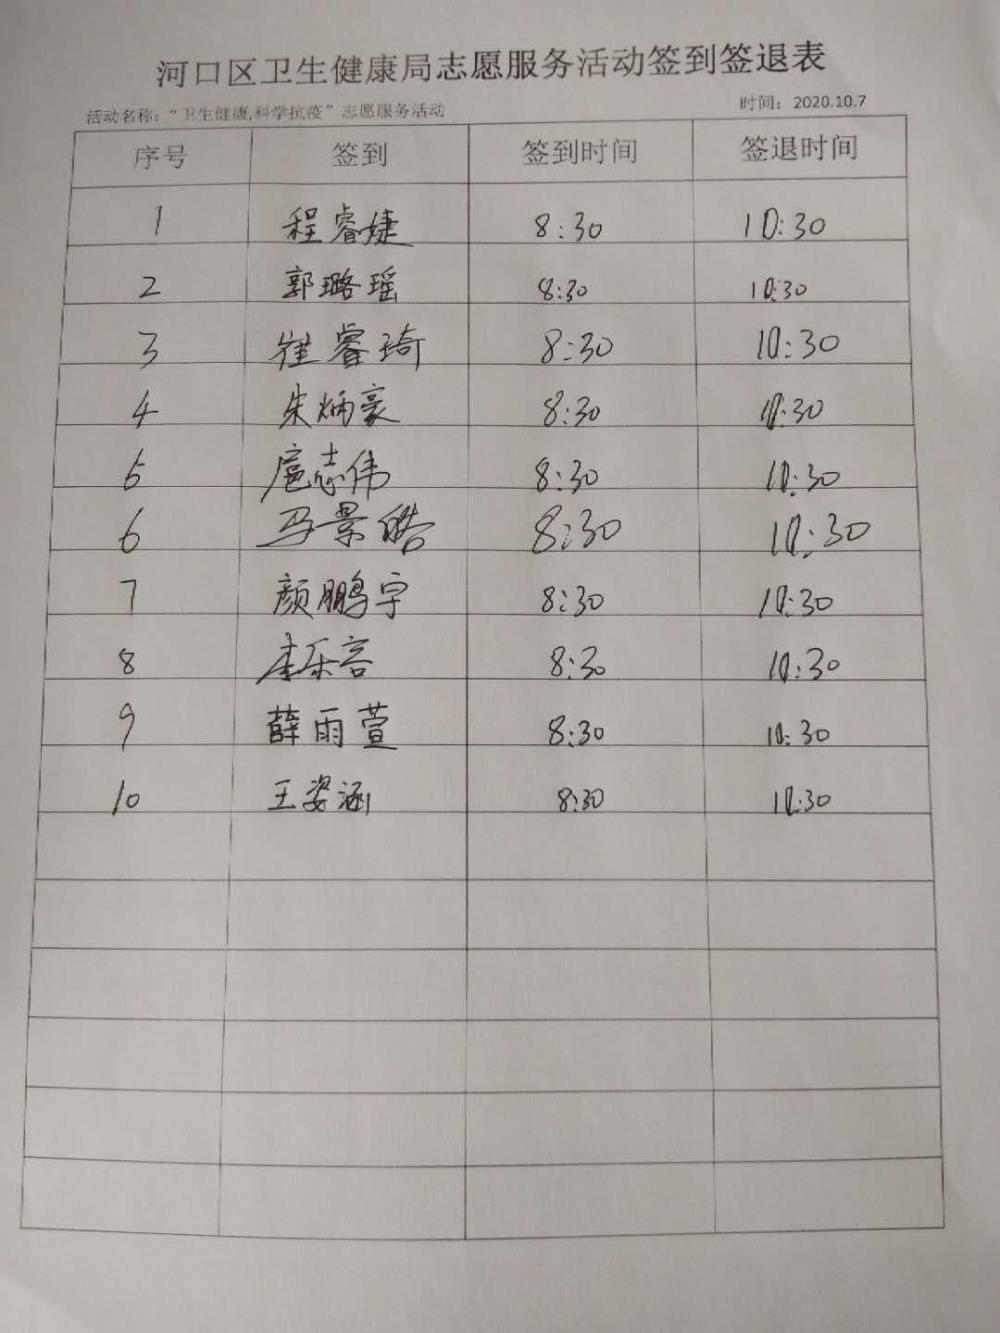 河口区卫生健康局志愿服务活动签到签退表
活动名称：“卫生健康,科学抗疫”志愿服务活动 时间：2020.10.7
序号 签到 签到时间 签退时间
1 程睿婕 8:30 10:30
2 郭璐瑶 8:30 10:30
3 崔睿琦 8:30 10:30
4 朱炳豪 8:30 10:30
5 扈志伟 8:30 10:30
6 马景皓 8:30 10:30
7 颜鹏宇 8:30 10:30
8 李乐容 8:30 10:30
9 薛雨萱 8:30 10:30
10 王姿涵 8:30 10:30